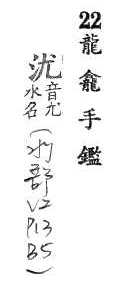 22龍龕手鑑
沋音尤
水名
(水部V2
P13
B5)